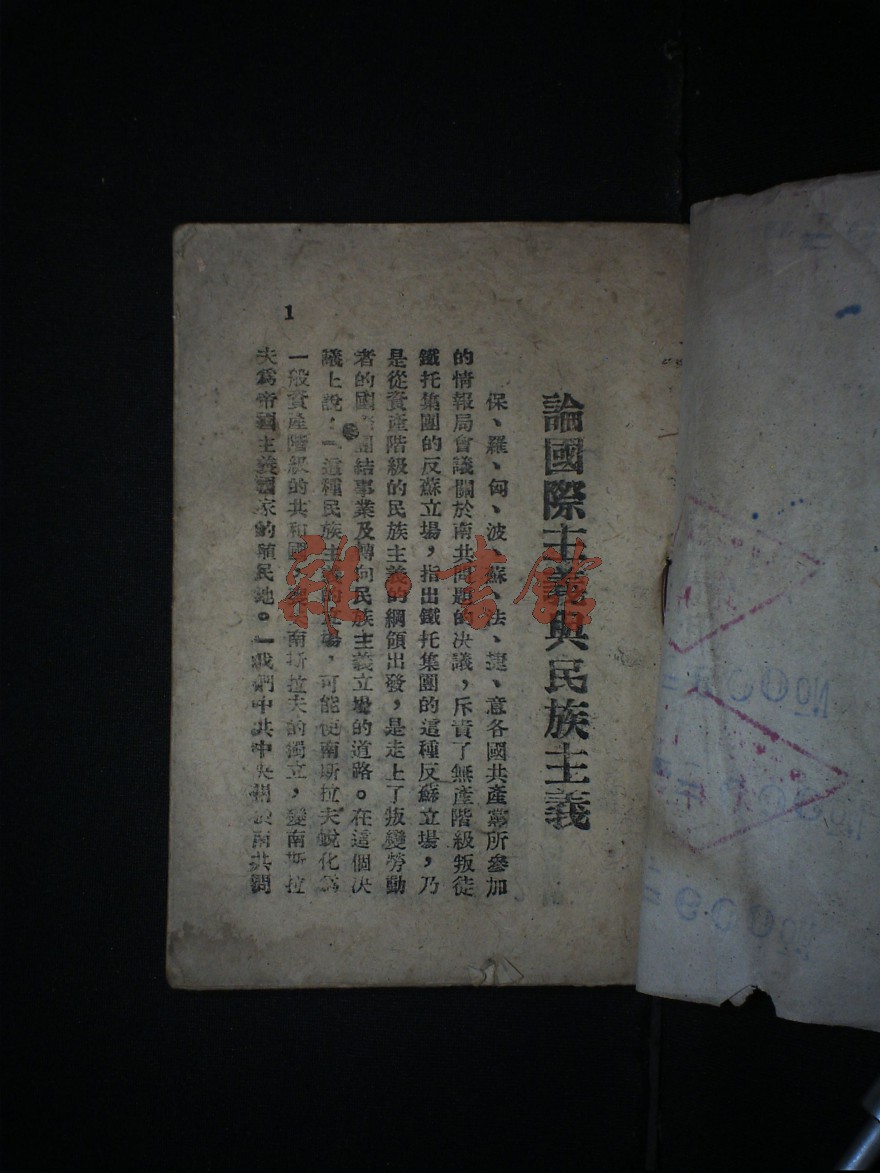 論國際主義與民族主義
保、羅、匈、波、蘇、法、捷、意各國共產黨所參加
的情報局會議關於南共問題的决議，斥責了無產階級叛徒
鐵托集團的反蘇立場，指出鐵托集團的這種反蘇立場，乃
是從資產階級的民族主義的綱領出發，是走上了叛變勞動
者的國團結事業及轉向民族主義立場的道路。在這個决
議上說：「這種民族主義的立場，可能使南斯拉夫蛻化為
一般資產階級的共和國，南斯拉夫的獨立，變南斯拉
夫為帝國主義國家的殖民地。」我們中共中央關於南共問
1
書館
No
No
No009=